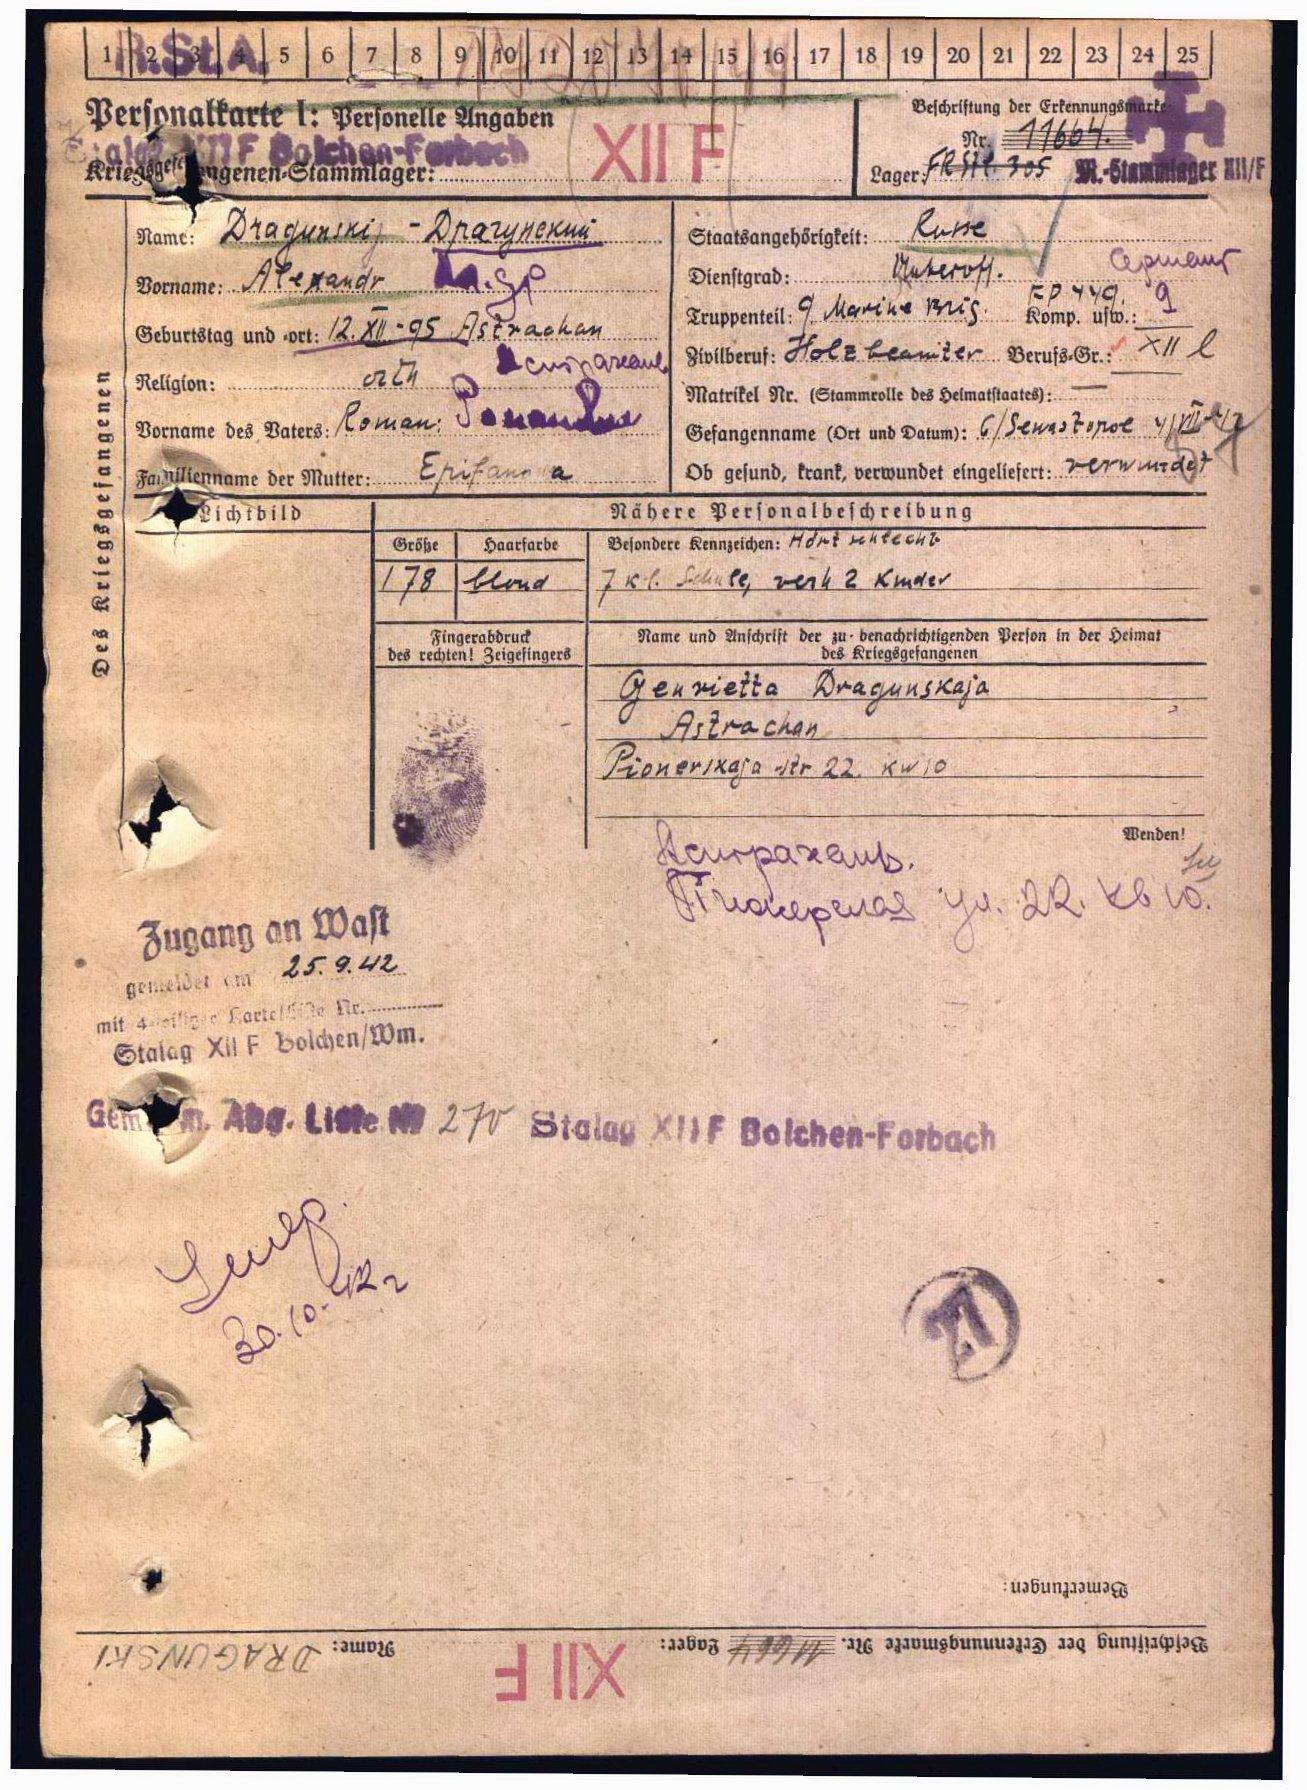 1 2 3 4 5 6 7 8 9 10 11 12 13 14 15 16 17 18 19 20 21 22 23 24 25
R.St.A.
Personalkarte I: Personelle Angaben
Beschriftung der Erkennungsmarke
Nr. 11664.
Stalag XII F Bolchen-Forbach
Kriegsgefangenen-Stammlager: XII F
Lager: FR Stl. 305 M.-Stammlager XII/F
Des Kriegsgefangenen
Name: Dragunskij - Драгунский
Vorname: Alexandr
Geburtstag und -ort: 12.XII-95 Astrachan
Астрахань
Religion: orth
Vorname des Vaters: Roman
Familienname der Mutter: Epifanowa
Staatsangehörigkeit: Russe
Dienstgrad: Unteroff. сержант
Truppenteil: 9 Marine Brig. FP 449. Komp. usw.: 9
Zivilberuf: Holzbeamter Berufs-Gr.: XII l
Matrikel Nr. (Stammrolle des Heimatstaates): —
Gefangenname (Ort und Datum): Sewastopol 4/VII-42
Ob gesund, krank, verwundet eingeliefert: verwundet
Lichtbild
Nähere Personalbeschreibung
Größe Haarfarbe Besondere Kennzeichen: Hört schlecht
178 blond 7 kl. Schule, verh 2 Kinder
Fingerabdruck
des rechten! Zeigefingers
Name und Anschrift der zu benachrichtigenden Person in der Heimat
des Kriegsgefangenen
Genrietta Dragunskaja
Astrachan
Pionerskaja str 22. kw 10
Wenden!
Астрахань.
Пионерская ул. 22. кв 10.
Zugang an Wast
gemeldet am 25.9.42
mit Karteiliste Nr.
Stalag XII F Bolchen/Wm.
Gem. m. Abg. Liste Nr 270 Stalag XII F Bolchen-Forbach
30.10.42 г
Bemerkungen:
Beschriftung der Erkennungsmarke Nr. 11664 Lager: XII F Name: DRAGUNSKI